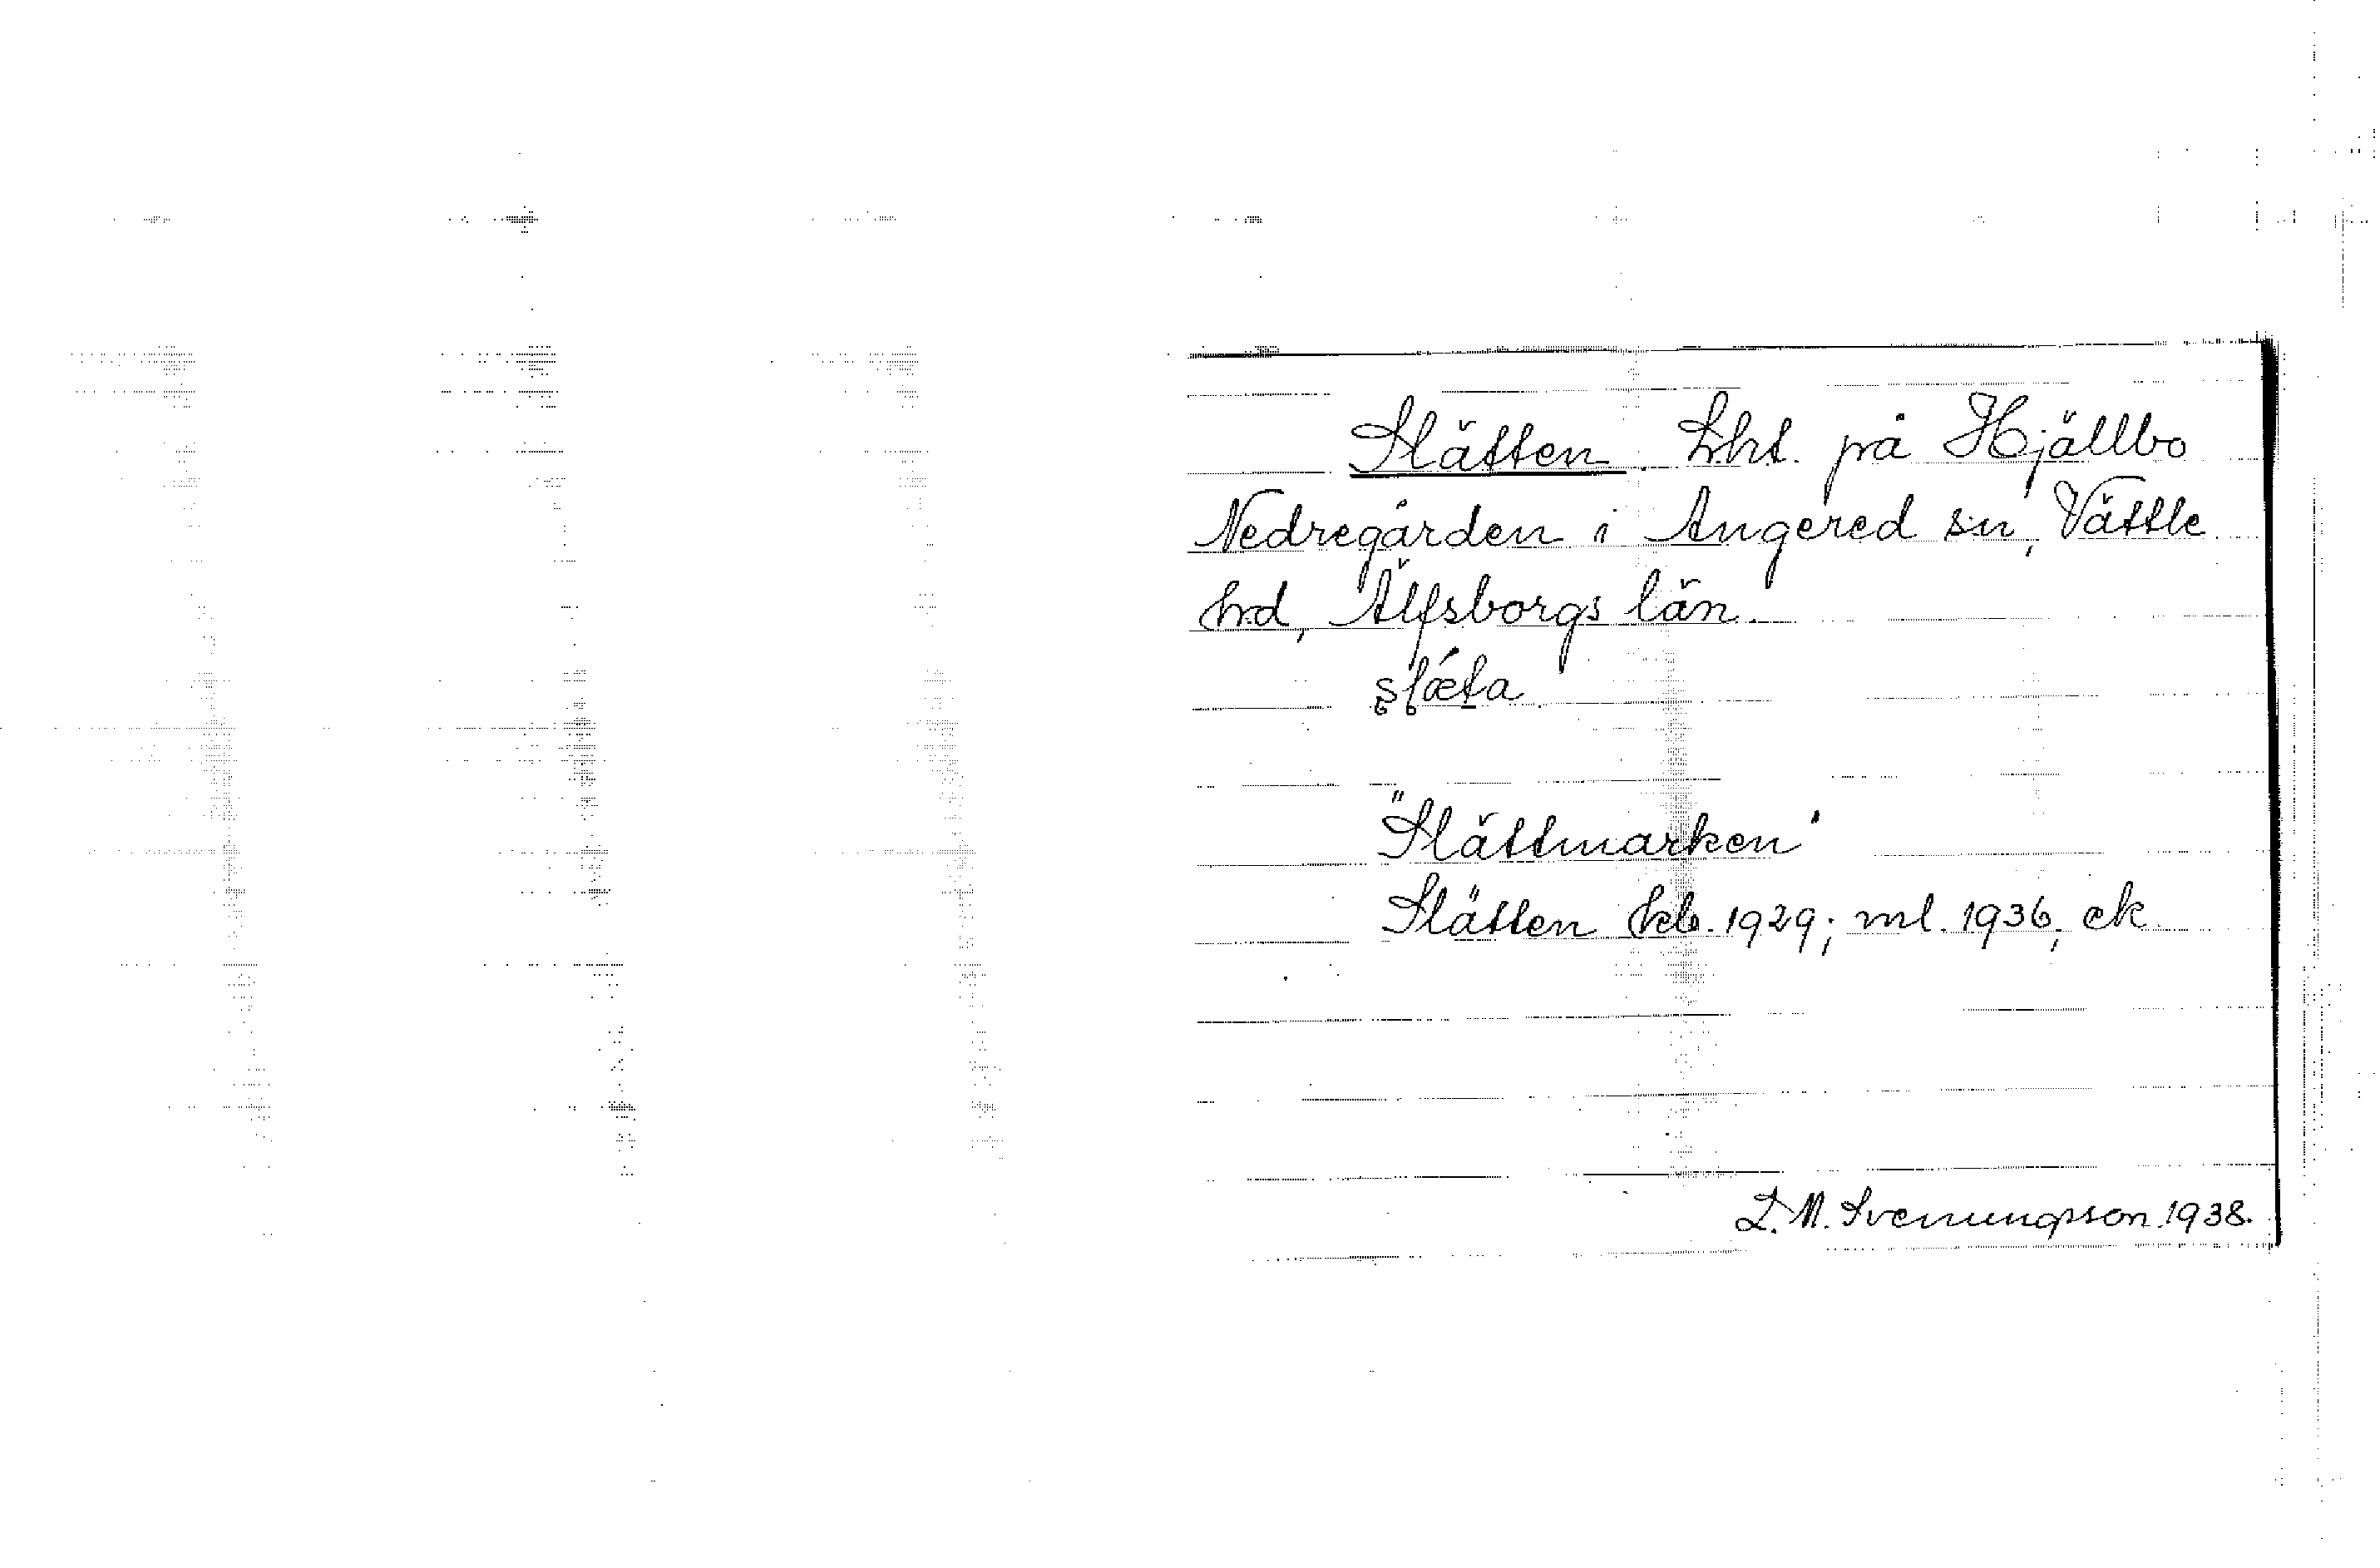 Slätten. Lht. på Hjällbo
Nedregården i Angered sn, Vättle
hd, Älfsborgs län.
slǽta
"Slättmarken"
Slätten hkb. 1929; ml. 1936, ek.
D. M. Svenungsson 1938.